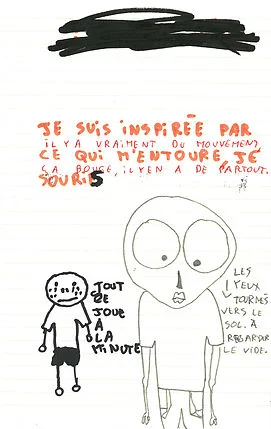 JE SUIS INSPIRÉE PAR
IL Y A VRAIMENT DU MOUVEMENT,
CE QUI M'ENTOURE, JE
ÇA BOUGE, IL Y EN A DE PARTOUT.
SOURIS
TOUT
SE
JOUE
À
LA
MINUTE
LES
YEUX
TOURNÉS
VERS LE
SOL. À
REGARDER
LE VIDE.